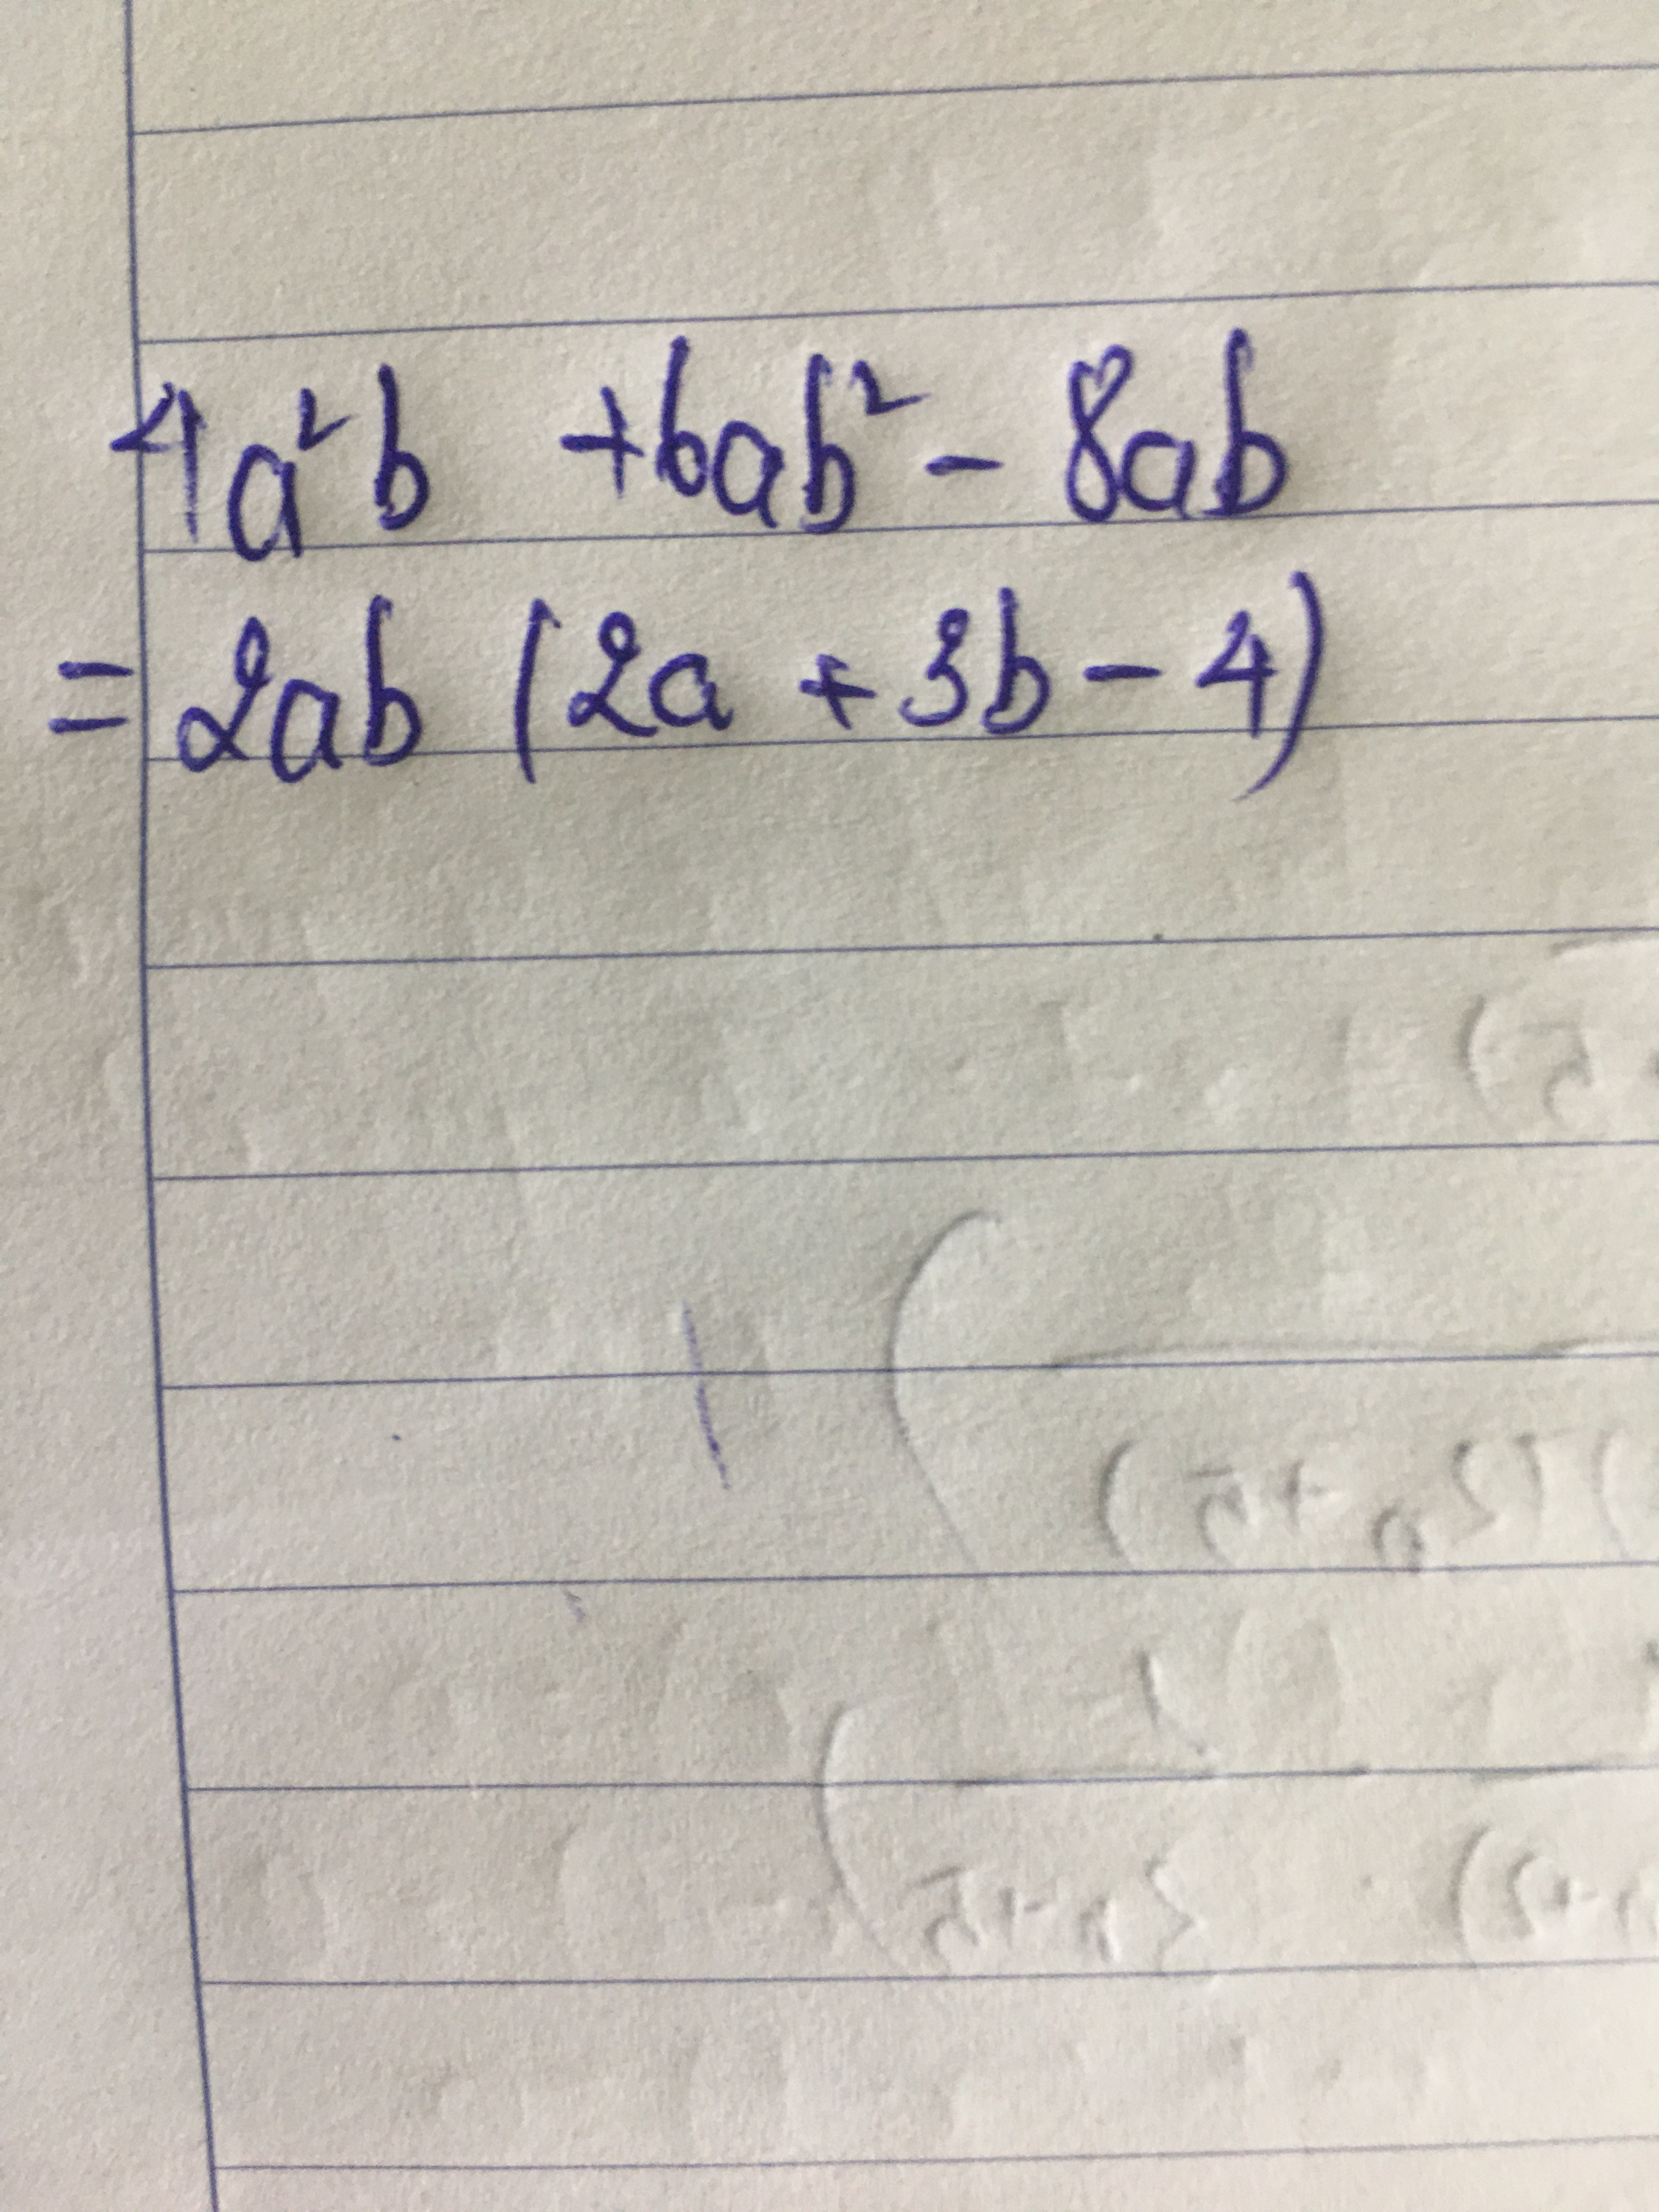 4a²b +6ab² - 8ab
= 2ab (2a + 3b - 4)